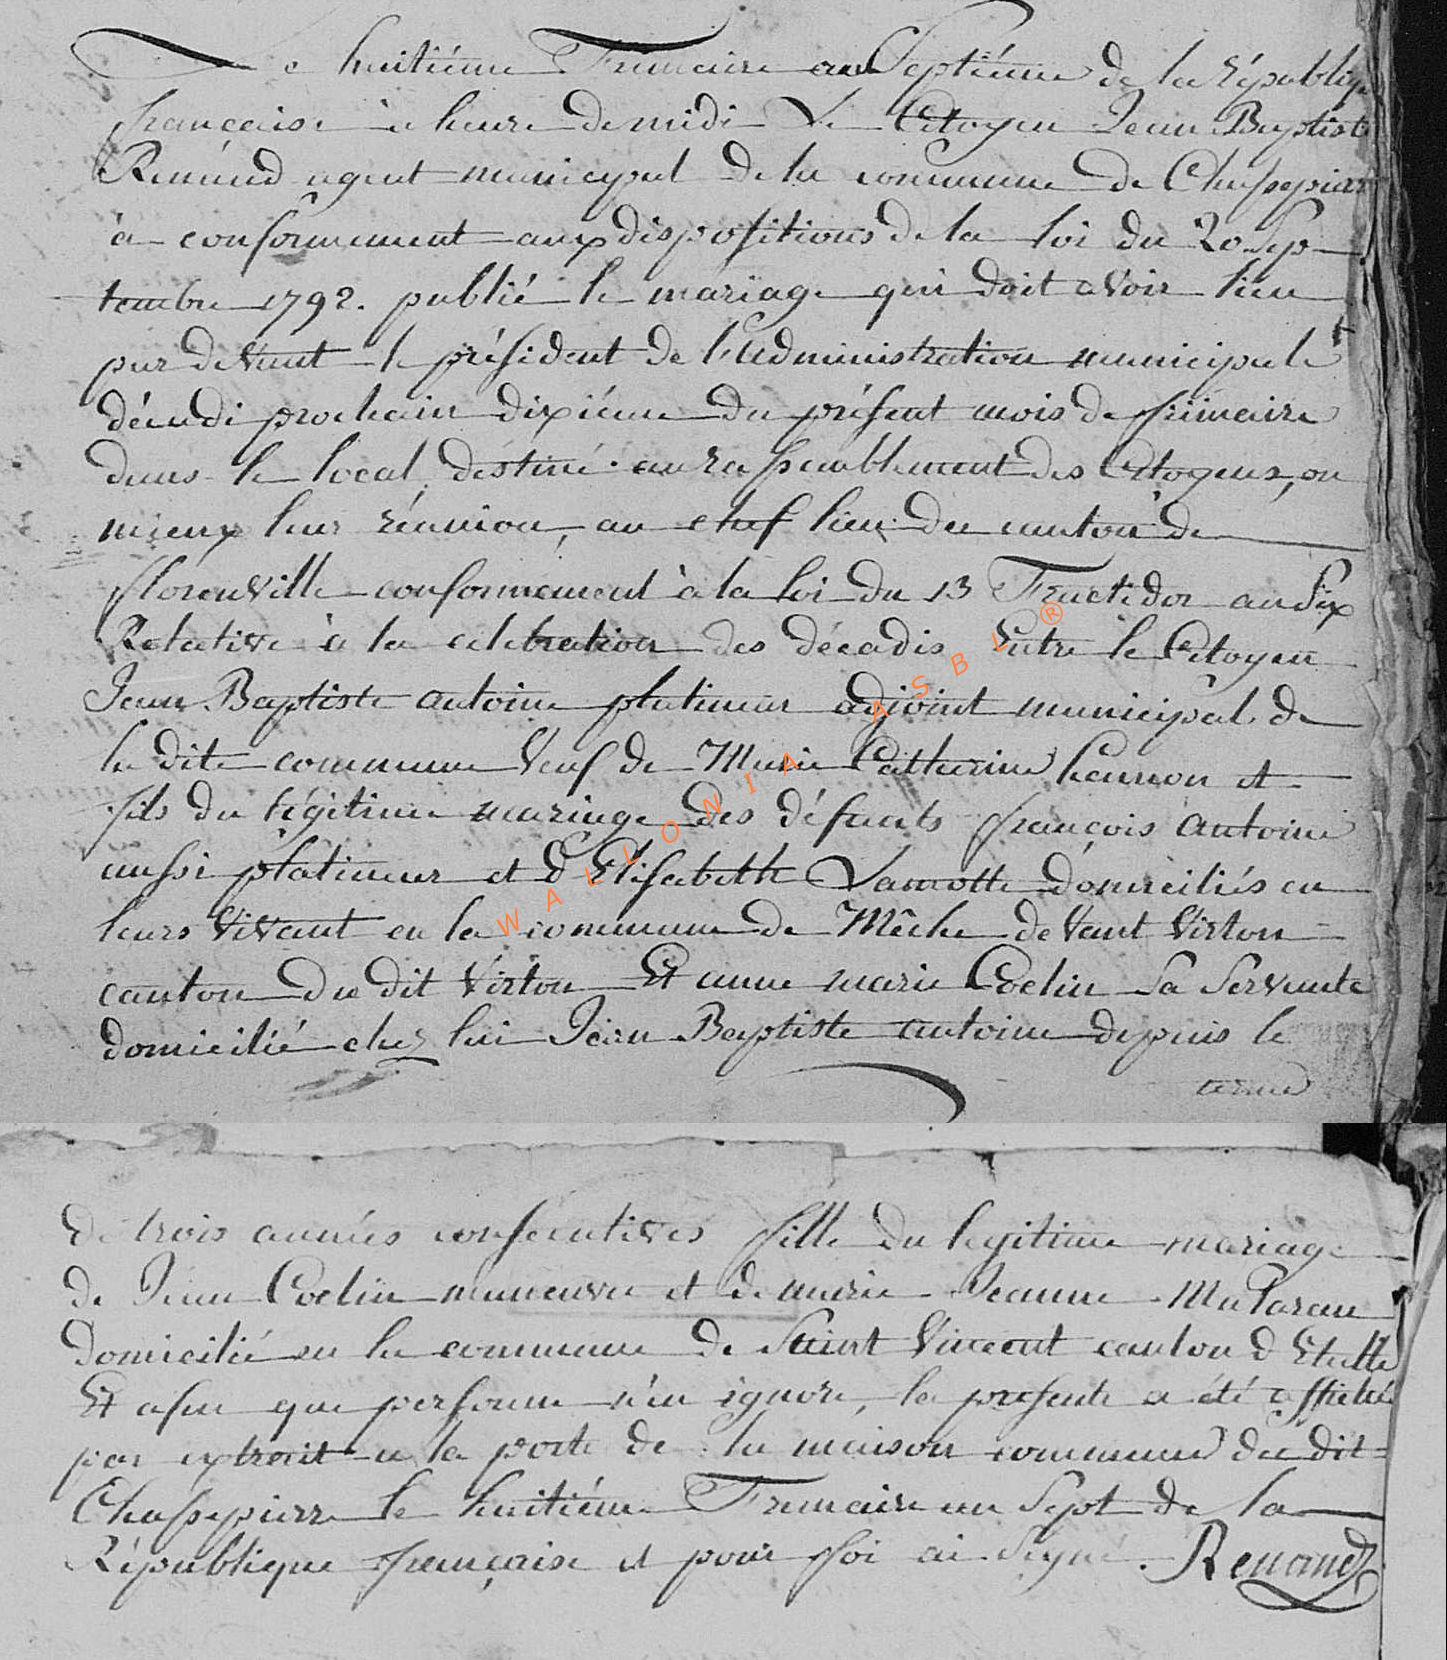 Le huitiéme Frimaire an Septiéme de la république
française à heure de midi Le Citoyen Jean Baptiste
Renaud agent municipal de la commune de Chassepierre
à conformement aux dispositions de la loi du 20 Sep-
tembre 1792. publié le mariage qui doit avoir lieu
par devant le président de l'administration municipale
décadi prochain dixiéme du présent mois de frimaire
dans le local destiné au rassemblement des Citoyens, ou
mieux leur réunion, au chef lieu du canton de
florenville conformément à la loi du 13 Fructidor an Six
Relative à la celebration des décadis Entre le Citoyen
Jean Baptiste antoine platineur adjoint municipal de
la dite commune Veuf de Marie Catherine henrion et
fils du légitime mariage des défunts françois antoine
aussi platineur et d'Elisabeth Lamotte domiciliés en
leurs Vivant en la commune de Mêche devant Virton
canton du dit Virton Et anne marie Coelin Sa Servante
domicilié chez lui Jean Baptiste antoine depuis le
terme
de trois années consecutives fille du legitime mariage
de Jean Coelin maneuvre et de marie Jeanne
domicilié en la commune de Saint Vincent canton d'Etalle
Et afin que personne n'en ignore, la presente a été affiché
par extrait a la porte de la maison commune du dit
Chassepierre le huitiéme Frimaire an Sept de la
République française et pour foi ai Signé. Renaud
WALLONIA ASBL ®